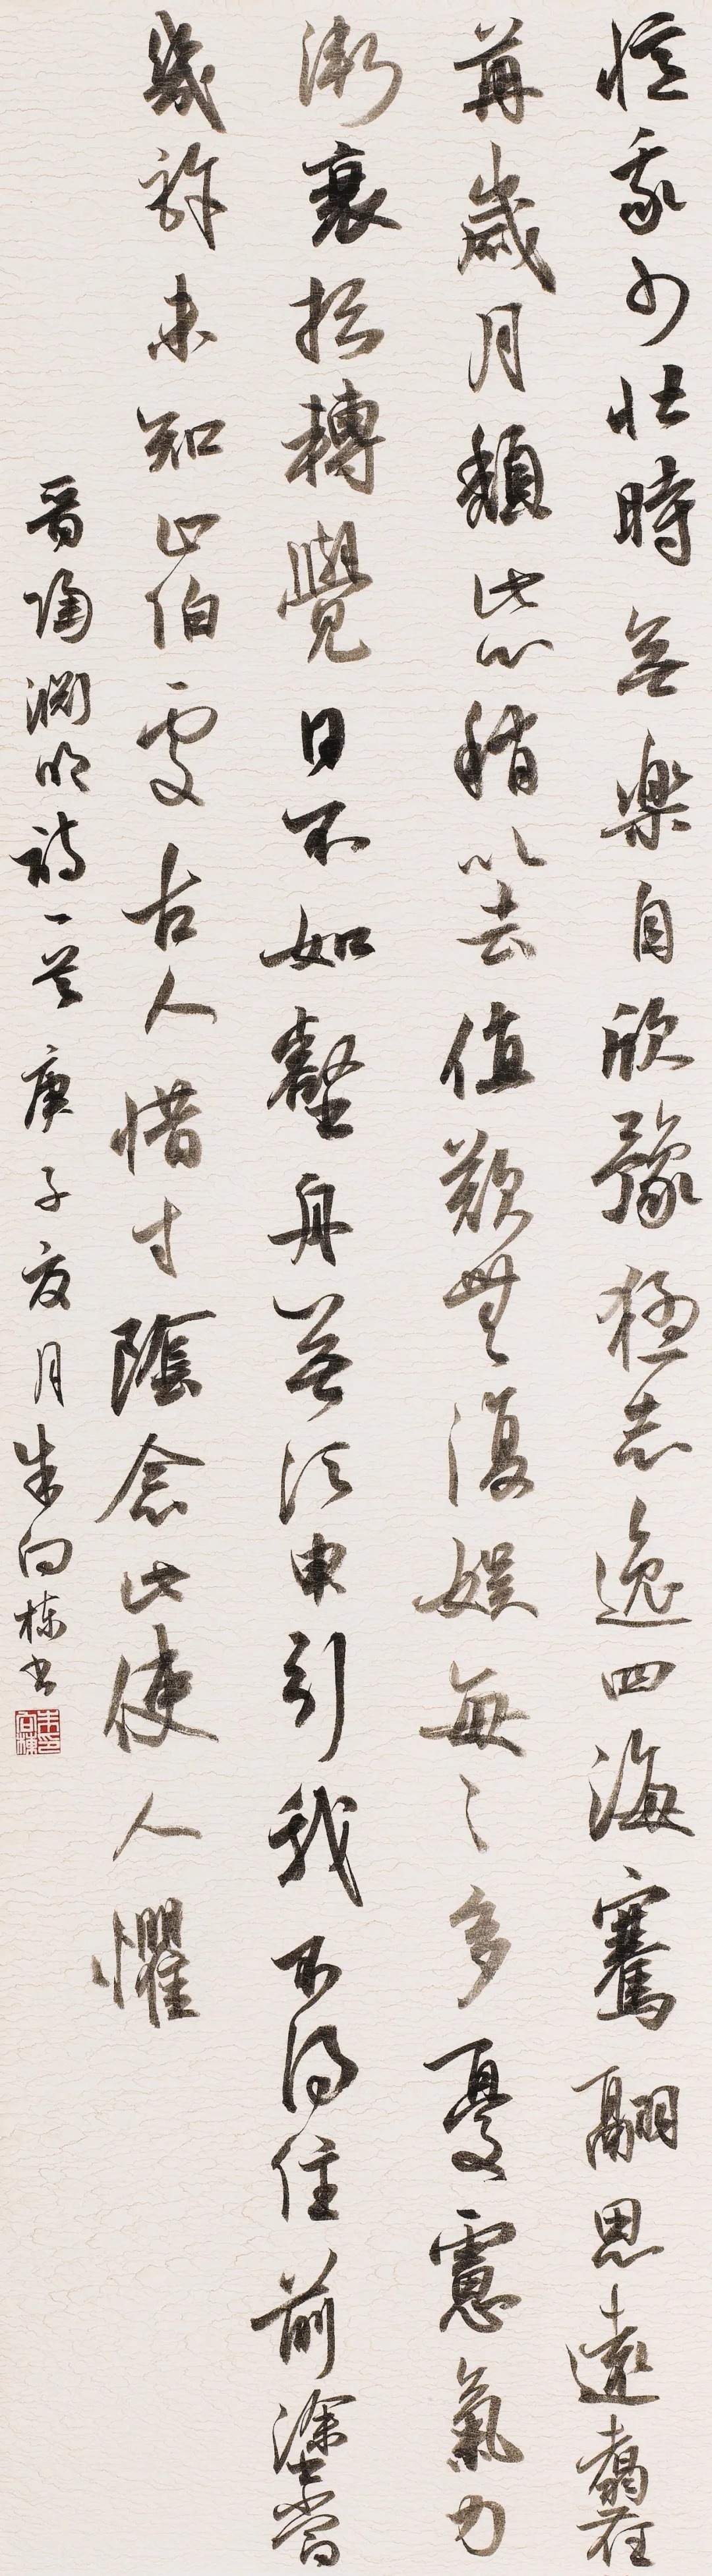 憶我少壯時無樂自欣豫猛志逸四海騫翮思遠翥荏
苒歲月頹此心稍以去值歡無復娛每〻多憂慮氣力
漸衰損轉覺日不如壑舟無須臾引我不得住前塗當
幾許未知止泊處古人惜寸陰念此使人懼
晉陶淵明詩一首庚子夏月朱向棟書